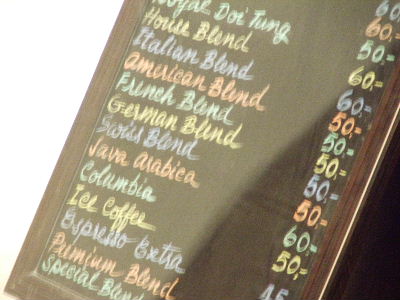 60
60,-
Royal Doi Tung 50,-
House Blend 60,-
Italian Blend 60,-
American Blend 50,-
French Blend 50,-
German Blend 50,-
Swiss Blend 50,-
Java Arabica 50,-
Columbia 60,-
Ice Coffee 50,-
Espresso Extra 45,-
Premium Blend
Special Blend